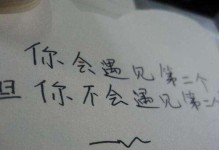 你会遇见第二个
但你不会遇见第二